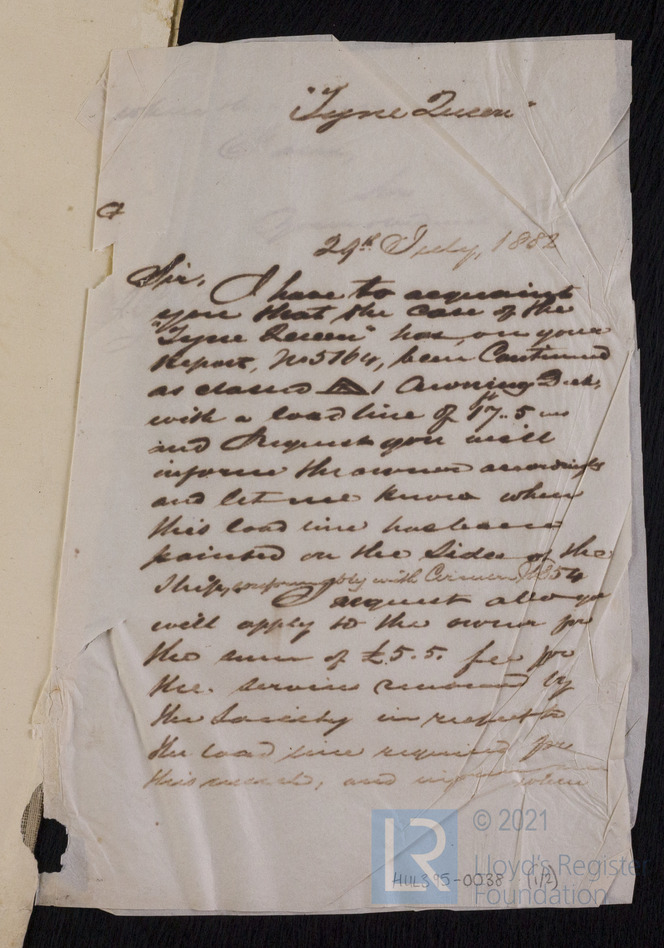 "Tyne Queen"
29th July, 1882
Sir, I have to acquaint
you that the case of the
"Tyne Queen" has, on your
Report, No 5164, been Continued
as classed 1 Awning Deck,
with a load line of 17.5 ins
and Request you will
inform the owner accordingly
and let me know when
this load line has been
painted on the Sides of the
Ship, conformably with Circular 54
I request also you
will apply to the owner for
the sum of £5.5. fee for
the services rendered by
the Society in respect to
the load line required for
this vessel, and inform me when
© 2021
LR
Lloyd's Register
Foundation
HUL395-0038 (1/2)